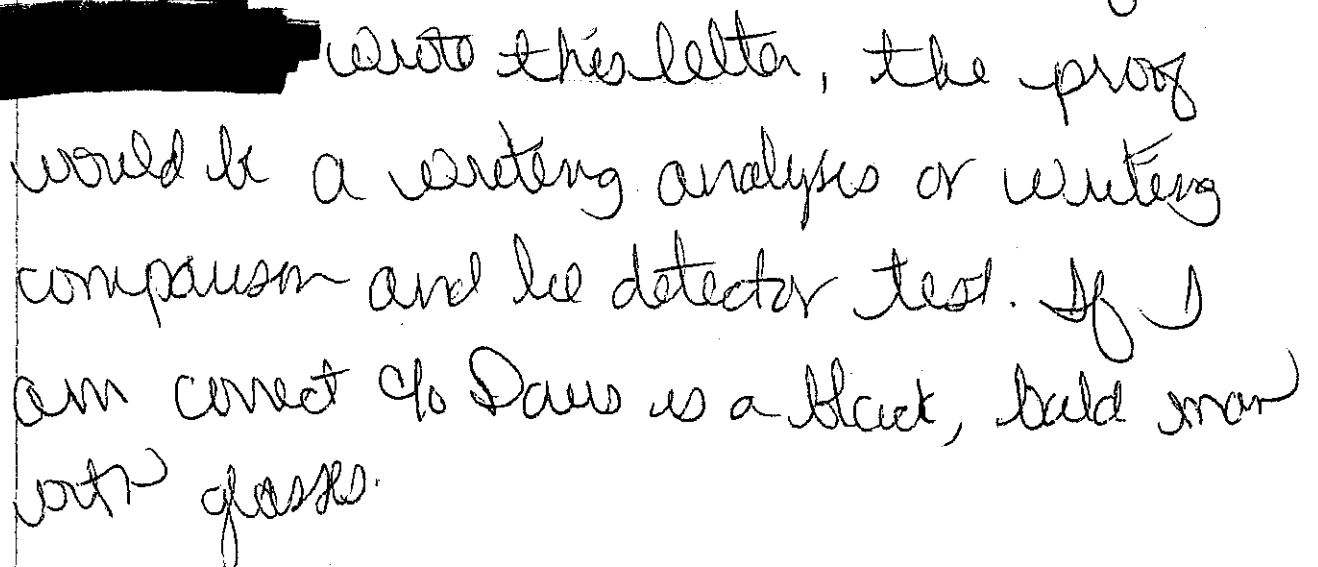 wrote this letter, the proof
would be a writing analysis or writing
comparison and lie detector test. If I
am correct c/o Davis is a black, bald man
with glasses.